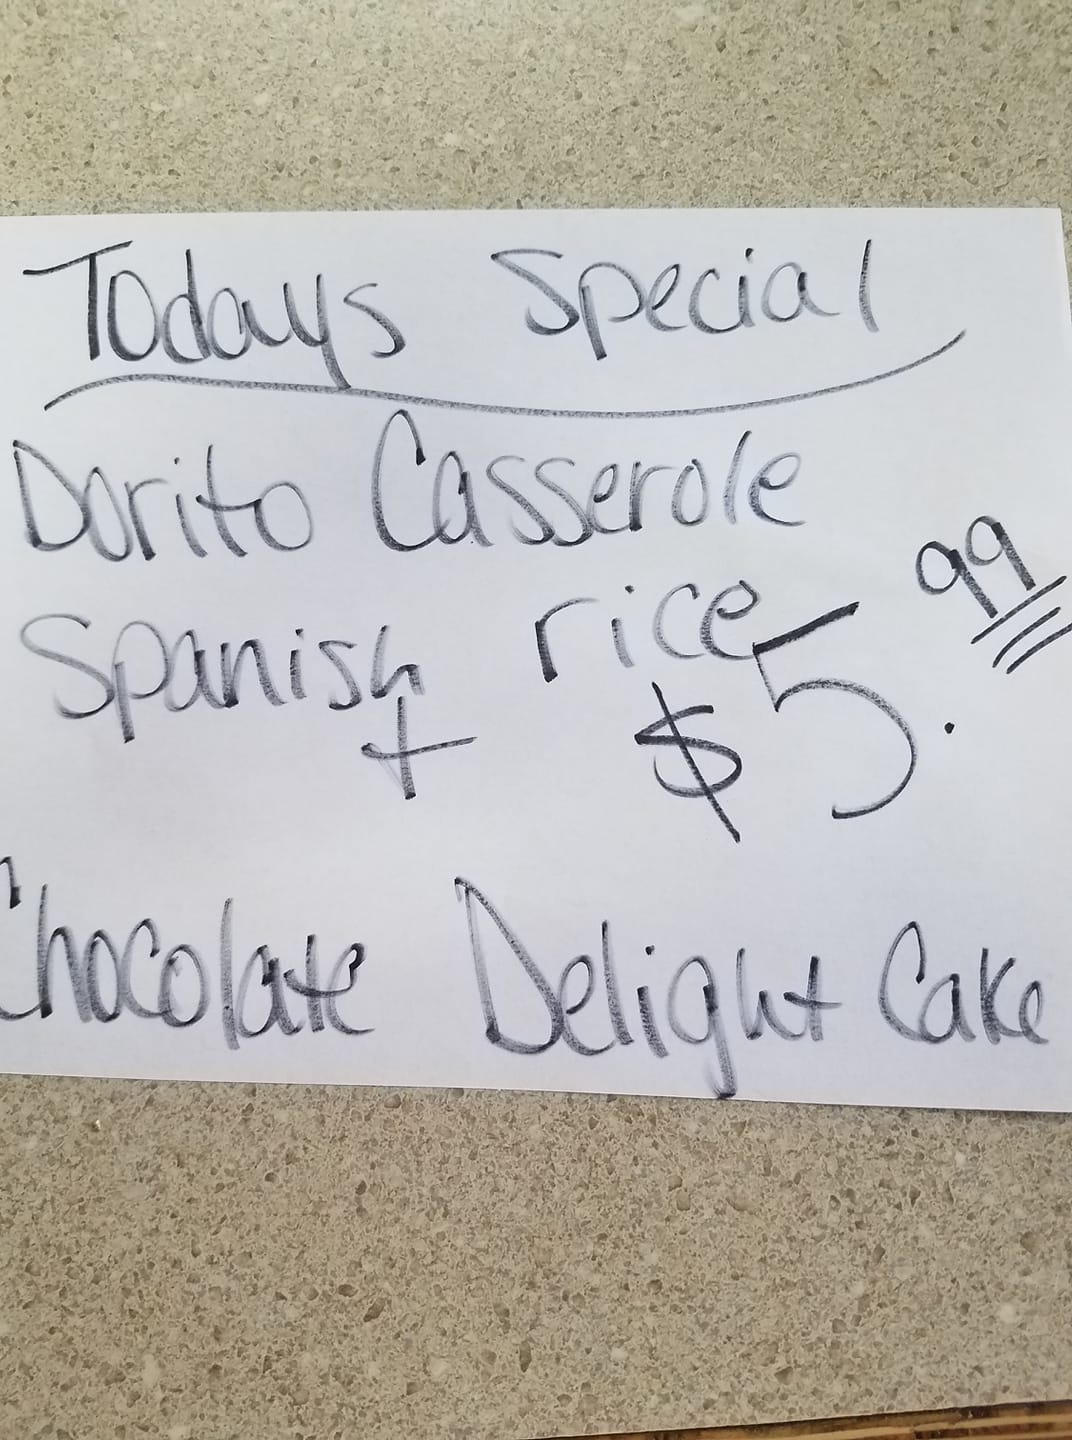 Todays Special
Dorito Casserole
Spanish rice
+ $5.99
Chocolate Delight Cake